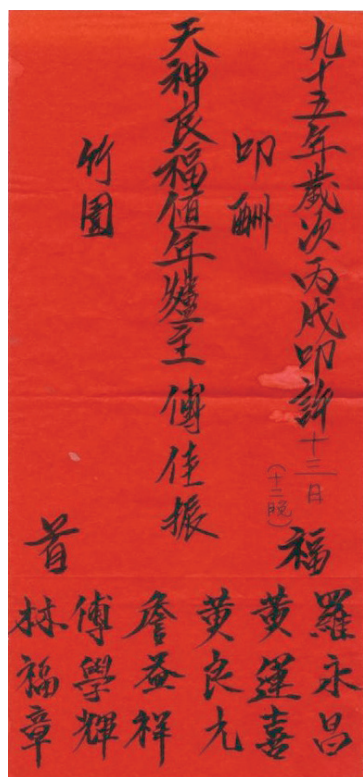 九十五年歲次丙戌叩許十三日
(十二晚)
叩酬
天神良福值年爐主 傅佳振
竹園
福
首
羅永昌
黃運喜
黃良九
詹益祥
傅學輝
林福章